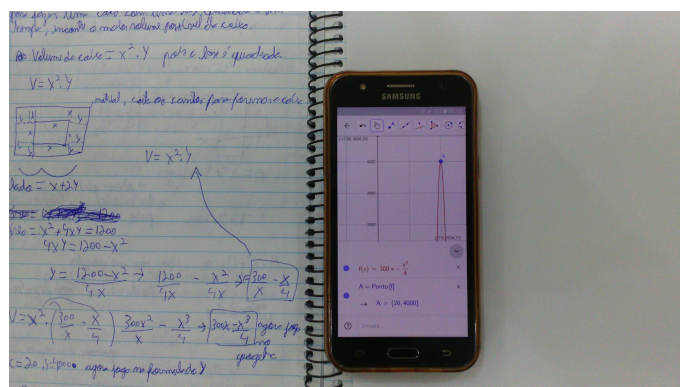 para fazer uma caixa com uma base quadrada e sem
tampa, encontre o maior volume possível da caixa.
Volume da caixa = x². y pois a base é quadrada.
V = x². y
material, corte os cantos para formar a caixa
V = x². y
lado = x+2y
= x² + 4xy = 1200
4xy = 1200 - x²
y = 1200-x² / 4x → 1200 / 4x - x² / 4x → y = 300 / x - x / 4
V = x² . (300 / x - x / 4) 300x² / x - x³ / 4 → 300x - x³ / 4 agora jogo
no
geogebra
x = 20, agora jogo na formula do y
SAMSUNG
4000
f(x) = 300 x - x³ / 4
A = Ponto[f]
→ A = (20, 4000)
Entrada...